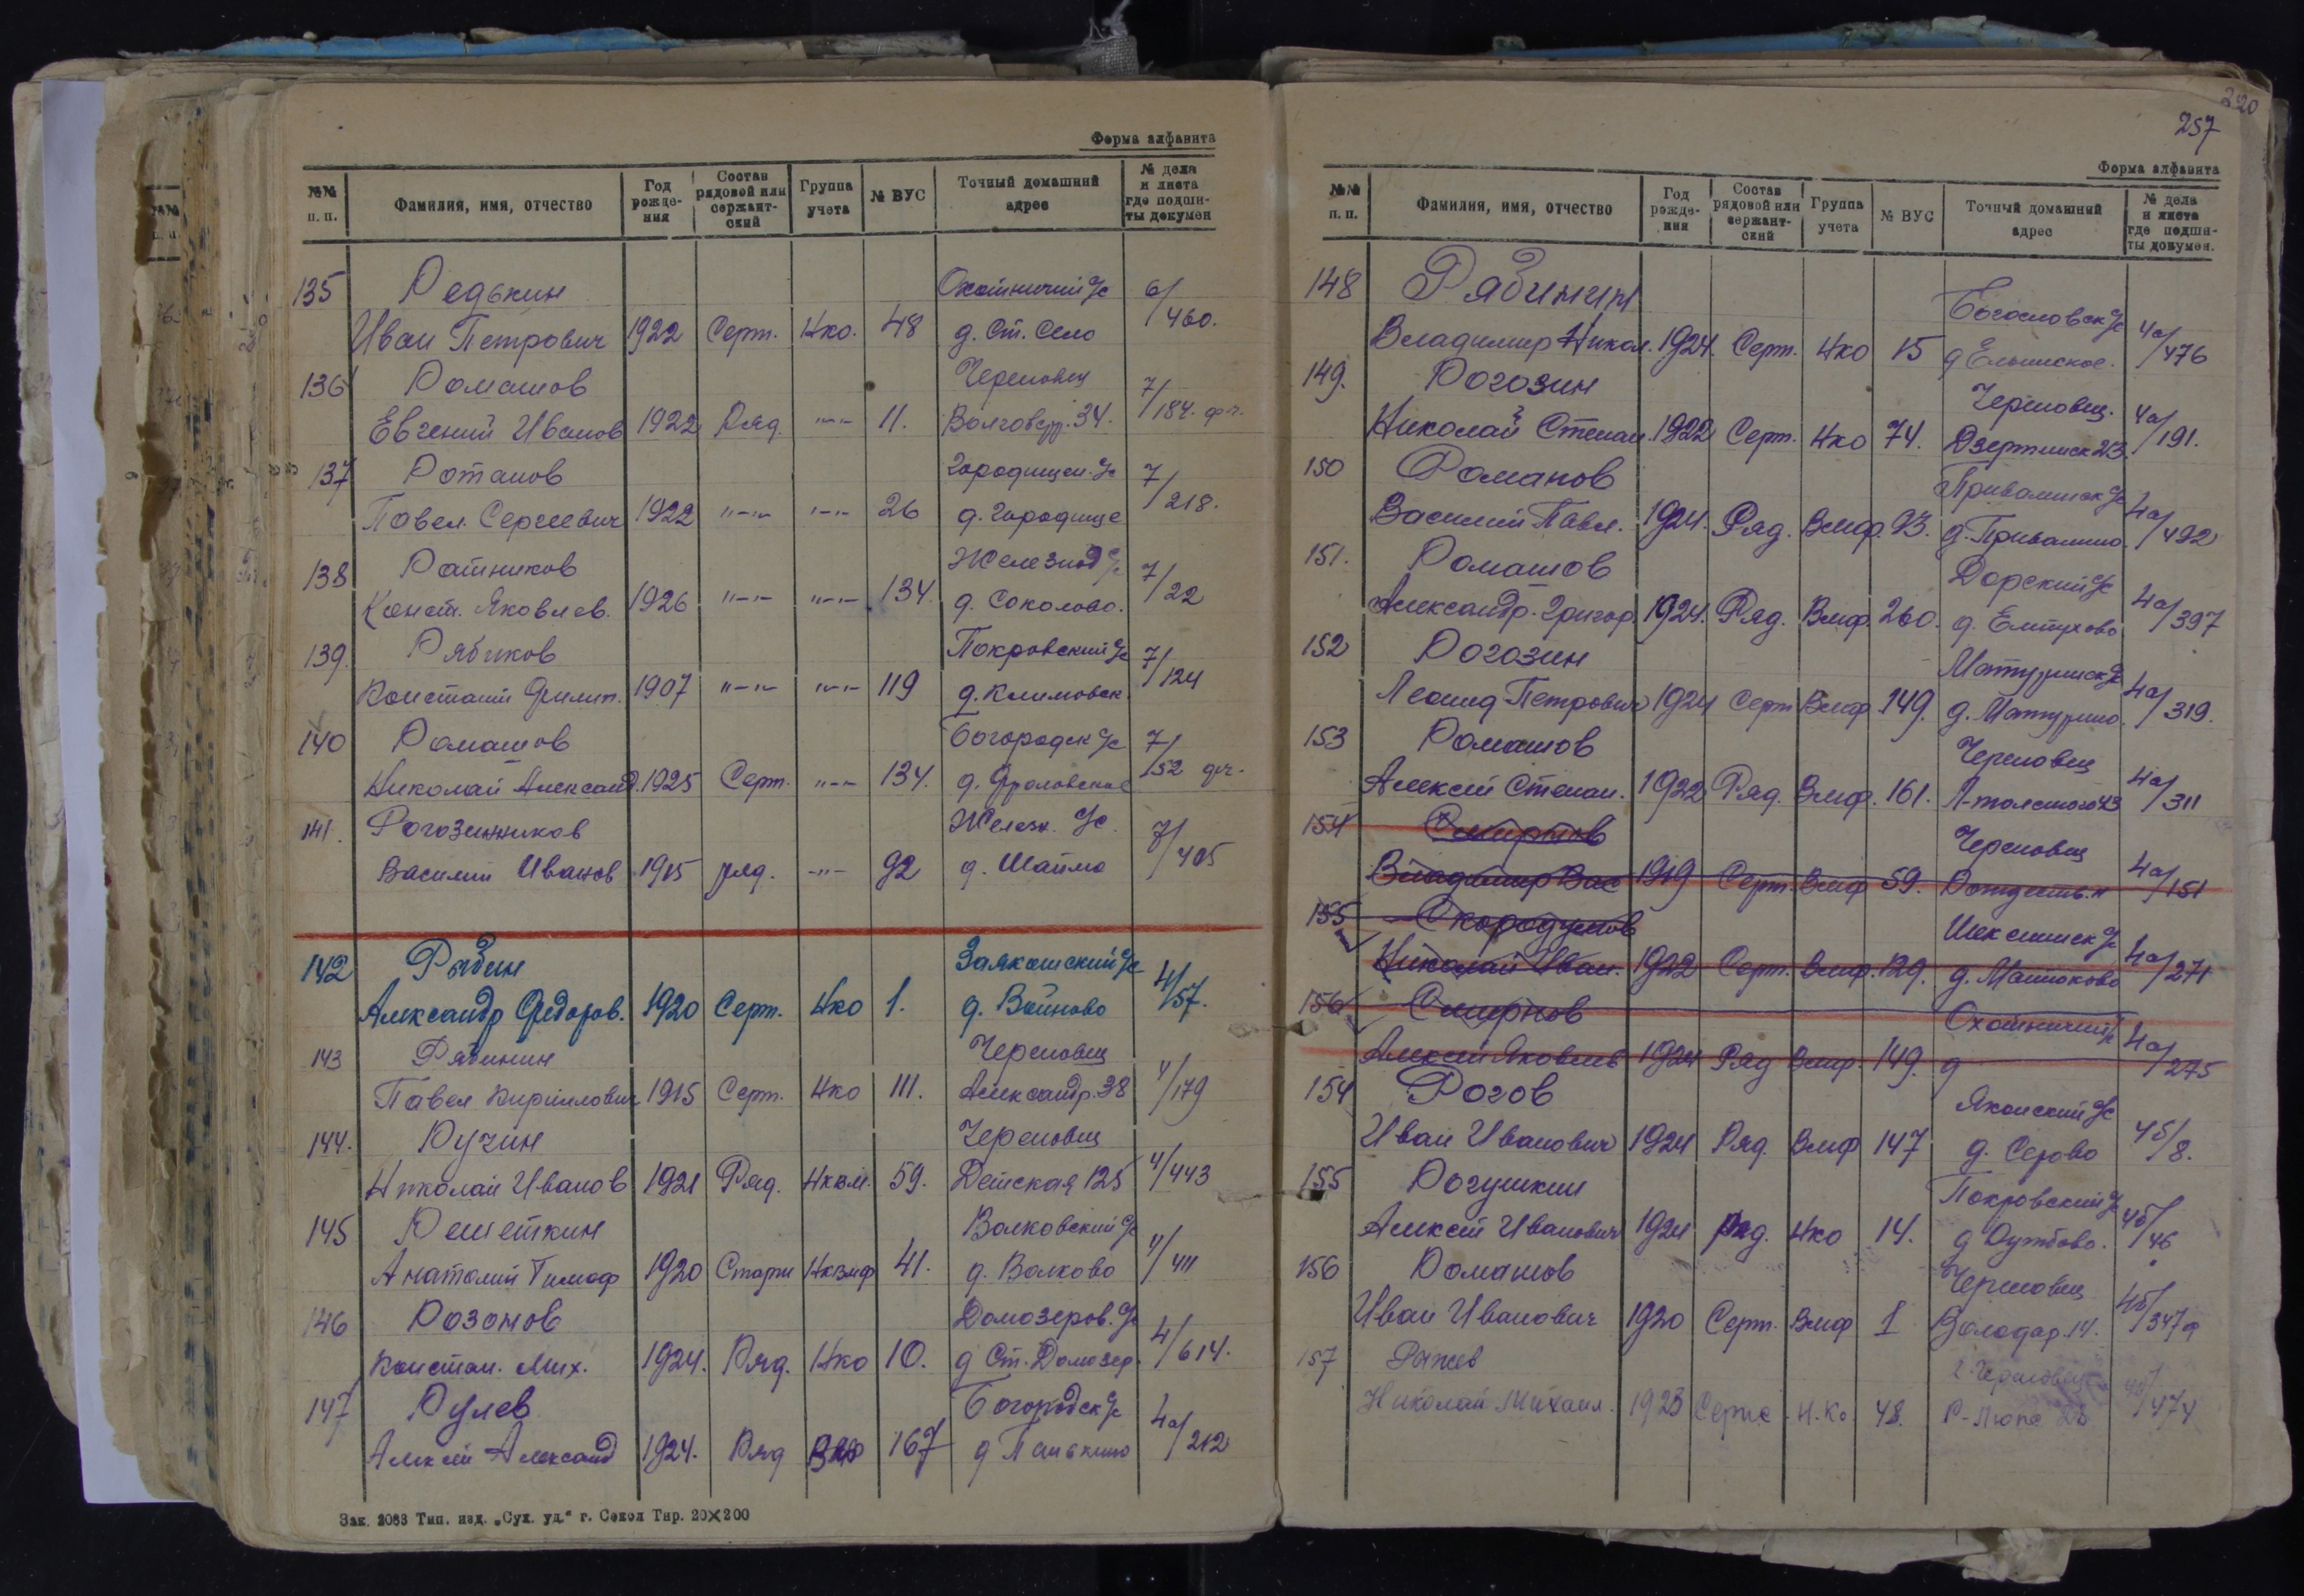 Форма алфавита
№№ п. п. | Фамилия, имя, отчество | Год рождения | Состав рядовой или сержантский | Группа учета | № ВУС | Точный домашний адрес | № дела и листа где подшиты докумен
135 Редькин Охотничий с/с 6/
Иван Петрович 1922 Серж. Нко. 48 д. Ст. Село 460.
136 Ромашов Череповец 7/
Евгений Иванов 1922 Ряд. "—" 11. 34. 184.
137 Городищен. с/с 7/
Павел Сергеевич 1922 "—" "—" 26 д. Городище 218.
138 Ратников Железнод с/с 7/
Конст. Яковлев. 1926 "—" "—" 134. д. Соколово. 22
139. Рябиков Покровский с/с 7/
Констант Филип. 1907 "—" "—" 119 д. Климовск. 124
140 Ромашов Богородск с/с 7/
Николай Александ. 1925 Серж. "—" 134. д. Фроловское 52
141. Рогозинников Железн. с/с. 7/
Василий Иванов 1915 ряд. -"- 92 д. Шайма 405
142 Рыбин с/с 4/
Александр Федоров. 1920 Серж. Нко 1. д. Войново 57.
143 Рябинин Череповец 4/
Павел Кириллович 1915 Серж. Нко 111. Александр. 38 179
144. Ручин Череповец 4/
Николай Иванов 1921 Ряд. 59. Детская 125 443
145 Решеткин Волковский с/с 4/
Анатолий Тимоф 1920 41. д. Волково 411
146 Розанов Домозеров. с/с 4/
Констан. Мих. 1924. Ряд. Нко 10. д Ст. Домозер. 614.
147 Рулев Богородск с/с 4а/
Алексей Александ 1924. Ряд 167 д Панькино 212
Зак. 2083 Тип. изд. „Сух. уд." г. Сокол Тир. 20×200
220
257
Форма алфавита
№№ п. п. | Фамилия, имя, отчество | Год рождения | Состав рядовой или сержантский | Группа учета | № ВУС | Точный домашний адрес | № дела и листа где подшиты докумен.
148 Рябинин Богословск с/с 4а/
Владимир Никол. 1924. Серж. Нко 15 476
149. Рогозин Череповец. 4а/
Николай Степан. 1922 Серж. Нко 74. 191.
150 Романов Привалинск с/с 4а/
Василий Павл. 1924. Ряд. Вмф. 93. д. Привалино. 492
151. Ромашов Дорский с/с 4а/
Александр. Григор 1924. Ряд. Вмф. 260. 397
152 Рогозин Матуринск с/с 4а/
Леонид Петрович 1924 Серж Вмф. 149. д. Матурино. 319.
153 Ромашов Череповец 4а/
Алексей Степан. 1922 Ряд. Вмф. 161. Л-толстого 43 311
154 Смирнов Череповец 4а/
Владимир Вас 1919 Серж. Вмф 59. 151
155 Скородумов Шекснинск с/с 4а/
Николай Иван. 1922 Серж. Вмф. 129. 271
156 Смирнов Охотничий 4а/
Алексей Яковлев 1924 Ряд Вмф. 149. д 275
154 Рогов Яконский с/с 4б/
Иван Иванович 1924 Ряд. Вмф 147 д. Серово 8.
155 Рогушкин Покровский с/с 4б/
Алексей Иванович 1924 Ряд. Нко 14. 46
156 Ромашов Череповец 4б/
Иван Иванович 1920 Серж. Вмф 1 Володар. 14. 347
157 Ряжев г. Череповец 4б/
Николай Михаил. 1923 Н.Ко. 48. 474